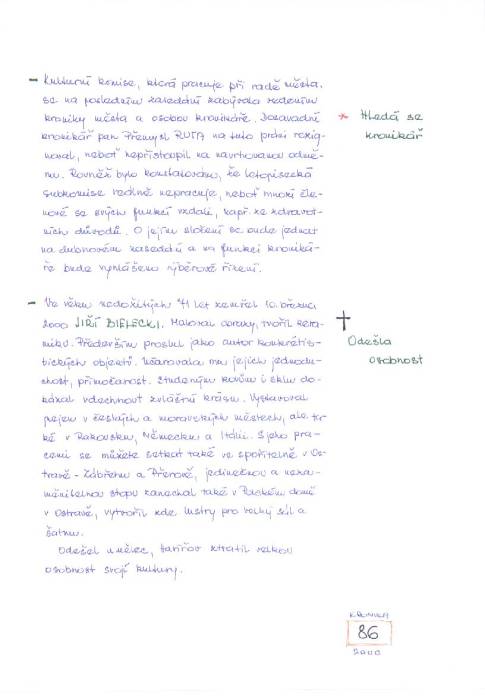 – Kulturní komise, která pracuje při radě města,
se na posledním zasedání zabývala vedením
kroniky města a osobou kronikáře. Dosavadní
kronikář pan Přemysl RUTA na tuto práci rezig-
noval, neboť nepřistoupil na navrhovanou odmě-
nu. Rovněž bylo konstatováno, že letopisecká
subkomise reálně nepracuje, neboť mnozí čle-
nové se svých funkcí vzdali, např. ze zdravot-
ních důvodů. O jejím složení se bude jednat
na dubnovém zasedání a na funkci kroniká-
ře bude vyhlášeno výběrové řízení.
* Hledá se
kronikář
– Ve věku nedožitých 71 let zemřel 10. března
2000 JIŘÍ BIELECKI. Maloval obrazy, tvořil kera-
miku. Především proslul jako autor konkrétis-
tických objektů. Učarovala mu jejich jednodu-
chost, přímočarost. Studeným kovům i sklu do-
kázal vdechnout zvláštní krásu. Vystavoval
nejen v českých a moravských městech, ale ta-
ké v Rakousku, Německu a Itálii. S jeho pra-
cemi se můžete setkat také ve spořitelně v Os-
travě - Zábřehu a Přerově, jedinečnou a neza-
měnitelnou stopu zanechal také v
domě
v Ostravě, vytvořil zde lustry pro velký sál a
šatnu.
Odešel umělec, Havířov ztratil velkou
osobnost svojí kultury.
†
Odešla
osobnost
KRONIKA
86
2000